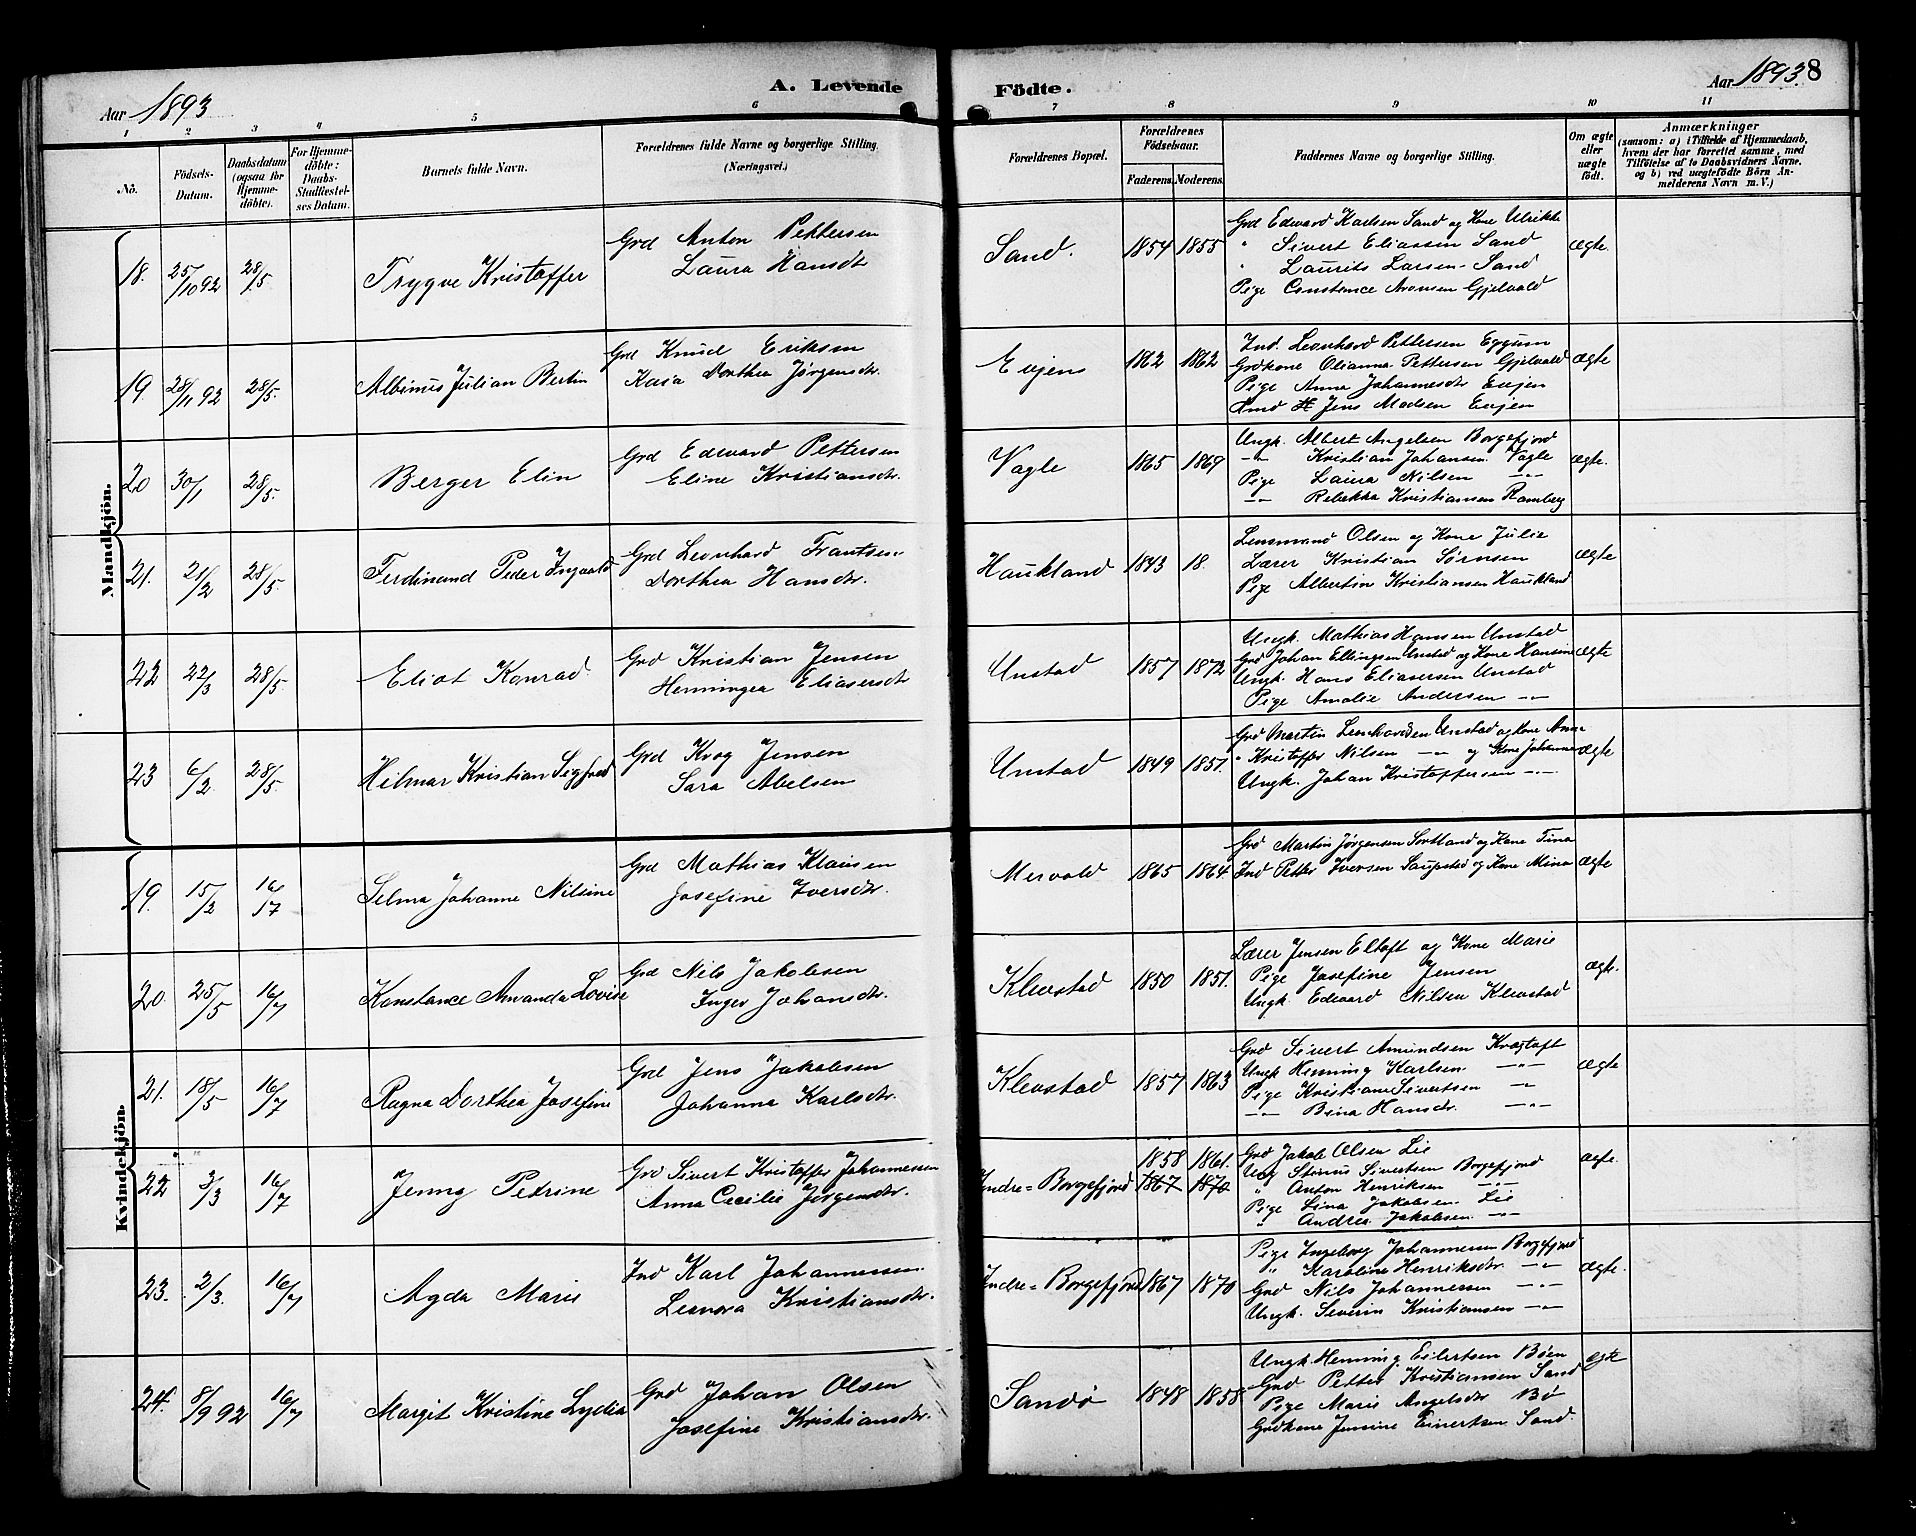 Aar 1893
A. Levende
Födte.
Aar 1893. 8
1 2 3 4 5 6 7 8 9 10 11
No.
Födsels-Datum.
Daabsdatum (ogsaa for Hjemme-döbte).
For Hjemme-döbte: Daabs-Stadfæstel-ses Datum.
Barnets fulde Navn.
Forældrenes fulde Navne og borgerlige Stilling. (Næringsvei.)
Forældrenes Bopæl.
Forældrenes Födselsaar.
Faderens. Moderens.
Faddernes Navne og borgerlige Stilling.
Om ægte eller uægte födt.
Anmærkninger
(saasom: a) i Tilfælde af Hjemmedaab, hvem der har forrettet samme, med Tilföielse af to Daabsvidners Navne, og b) ved uægtefödte Börn An-melderens Navn m. V.)
Mandkjön.
18. 25/10 92 28/5 Trygve Kristoffer
Grd Anton Pettersen
Laura Hansdtr
Sand. 1854 1855
Grd Edward Karlsen Sand og Kone Ulrikke
" Sivert Eliassen Sand
" Laurits Larsen Sand
Pige Constance Aronsen Gjelvald
ægte.
19. 28/11 92 28/5. Albinus Julian Bertin
Grd Knud Eriksen
Kaia Dorthea Jørgensdtr.
Evjens 1862 1862
Ind. Leonhard Pettersen Eggum
Grdkone Olianna Pettersen Gjelvald
Pige Anna Johannesdtr Evjen
Jens Madsen Evjen
ægte
20 30/1 28/5. Berger Elin
Grd Edward Pettersen
Eline Kristiansdtr.
Vagle 1865 1869
Ungk. Albert Angelsen Borgefjord
-"- Kristian Johansen Vagle
Pige Laura Nilsen -"-
-"- Rebekka Kristiansen Ramberg
ægte.
21. 21/2 28/5. Ferdinand Peder Ingvald
Grd Leonhard Frantsen
Dorthea Hansdtr.
Haukland 1843 18.
Lensmand Olsen og Kone Julie
Lærer Kristian Sørnsen
Pige Albertin Kristiansen Haukland
ægte
22 22/3 28/5. Eliot Konrad
Grd Kristian Jensen
Henningea Eliasersdtr
Unstad 1857 1872
Ungk. Mathias Hansen Unstad
Grd Johan Ellingsen Unstad og Kone Hansine
Ungk. Hans Eliasersen Unstad
Pige Amalie Andersen -"-
ægte
23 6/2 28/5. Hilmar Kristian Sigfred
Grd Krog Jensen
Sara Abelsen
Unstad 1849 1851.
Grd Martin Leonhardsen Unstad og Kone Anna
" Kristoffer Nilsen -"- og Kone Johanne
Ungk. Johan Kristoffersen -"-
ægte
Kvindekjön.
19. 15/2 16/7 Selma Johanne Nilsine
Grd Mathias Klausen
Josefine Iversdtr.
Mervold 1865 1864.
Grd Martin Jørgensen Sortland og Kone Tina
Ind Petter Iversen Saupstad og Kone Mina
ægte
20. 25/5 16/7 Konstance Amanda Lovise
Grd Nils Jakobsen
Inger Johansdtr.
Klevstad 1850 1851.
Lærer Jensen Eltoft og Kone Marie
Pige Josefine Jensen
Ungk. Edvard Nilsen Klevstad
ægte.
21. 18/5 16/7 Ragna Dorthea Josefine
Grd Jens Jakobsen
Johanna Karlsdtr.
Klevstad 1857 1863
Grd Sivert Amundsen Kragtoft
Ungk Henning Karlsen -"-
Pige Kristiane Sivertsen -"-
-"- Bina Hansdtr. -"-
ægte
22 3/3 16/7 Jenny Petrine
Grd Sivert Kristoffer Johannessen
Anna Cecilie Jørgensdtr.
Indre-Borgefjord 1858 1861.
1867 1870
Grd Jakob Olsen Lie
Ung Sivertsen Borgefjord
" Anton Henriksen -"-
Pige Lina Jakobsen Lie
" Andrea Jakobsen -"-
ægte.
23. 2/3. 16/7 Agda Marie
Ind Karl Johannessen
Leonora Kristiansdtr.
Indre-Borgefjord 1867 1870
Pige Ingeborg Johannessen Borgefjord
" Karoline Henriksdtr. -"-
Grd Nils Johannessen -"-
Ungk. Severin Kristiansen -"-
ægte.
24. 8/9 92 16/7 Margit Kristine Lydia
Grd Johan Olsen
Josefine Kristiansdtr.
Sandø 1848 1858
Ungk. Henning Eilertsen Bøen
Grd Petter Kristiansen Sand
Pige Marie Angelsdtr Bø
Grdkone Jensine Einertsen Sand.
ægte